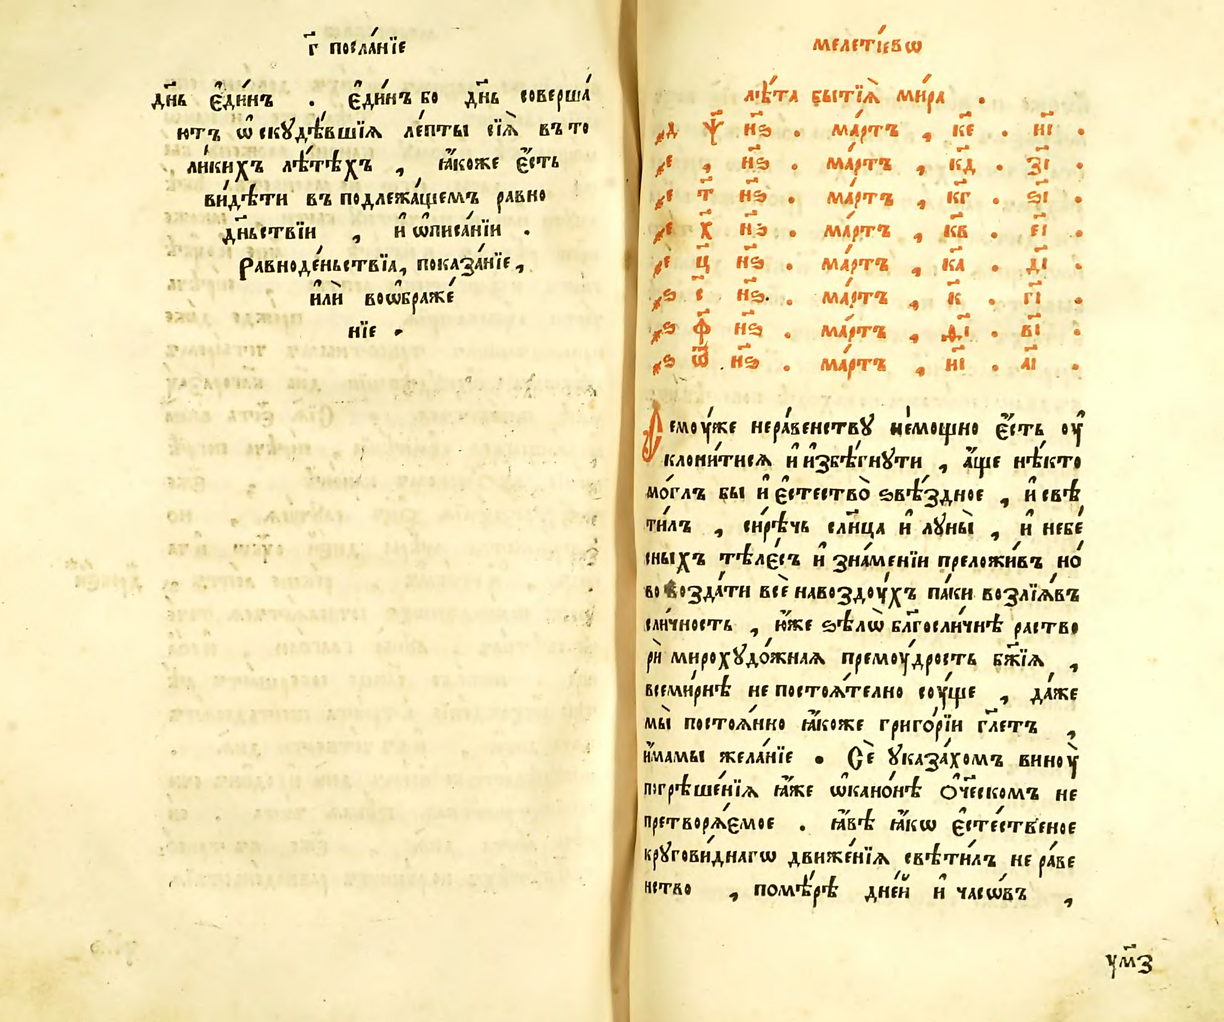 г҃ посла́нїе
дн҃ь є҆ди́нъ . є҆ди́нъ бо дн҃ь соверша́
ютъ ѡ҆скудѣ́вшїѧ ле́пты сїѧ̀ въ то
ли́кихъ лѣ́тѣхъ , ꙗ҆́коже є҆́сть
ви́дѣти въ подлежа́щемъ равно
дн҃ьствїи , и҆ ѡ҆писа́нїи .
Равноде́ньствїа, показа́нїе,
и҆лѝ воѡ҆браже́
нїе .
меле́тїевѡ
лѣ́та бытїѧ̀ ми́ра .
҂д ѱ҃ нѕ҃ . ма́ртъ , ке҃ . иі҃ .
҂е , нѕ҃ . ма́ртъ , кд҃ . зі҃ .
҂е т҃ нѕ҃ . ма́ртъ , кг҃ . ѕі҃ .
҂е х҃ нѕ҃ . ма́ртъ , кв҃ . еі҃ .
҂е ц҃ нѕ҃ . ма́ртъ , ка҃ . ді҃ .
҂ѕ с҃ нѕ҃ . ма́ртъ , к҃ . гі҃ .
҂ѕ ф҃ нѕ҃ . ма́ртъ , ѳі҃ . ві҃ .
҂ѕ ѿ҃ нѕ҃ . ма́ртъ , иі҃ . аі҃ .
Семоу́же нера́венству не́мощно є҆́сть оу҆
клони́тисѧ и҆ и҆збѣ́гнути , а҆́ще нѣ́кто
мо́глъ бы и҆ є҆стество̀ ѕвѣ́здное , и҆ свѣ
ти́лъ , си́рѣчь сл҃нца и҆ луны̀ , и҆ небе́
сныхъ тѣле́съ и҆ зна́менїи преложи́въ но́
во созда́ти всѐ на воздоу́хъ па́ки возлїѧ́въ
сли́чность , ю҆́же ѕѣлѡ̀ бл҃госли́чнѣ раство
рѝ мирохудо́жнаѧ премоу́дрость бж҃їѧ ,
всеми́рнѣ не постоѧ́телно соу́ще , да́же
мы̀ постоѧ́нно ꙗ҆́коже григо́рїи гл҃етъ ,
и҆́мамы жела́нїе . Сѐ указа́хомъ виноу̀
погрѣше́нїѧ ꙗ҆́же ѡ҆ кано́нѣ ѻ҆ч҃ескомъ не
претворѧ́ємое . ꙗ҆́вѣ ꙗ҆́кѡ є҆сте́ственое
кругови́днагѡ движе́нїѧ свѣти́лъ не ра́ве
нство , помѣ́рѣ дне́й и҆ часѡ́въ ,
ум҃з